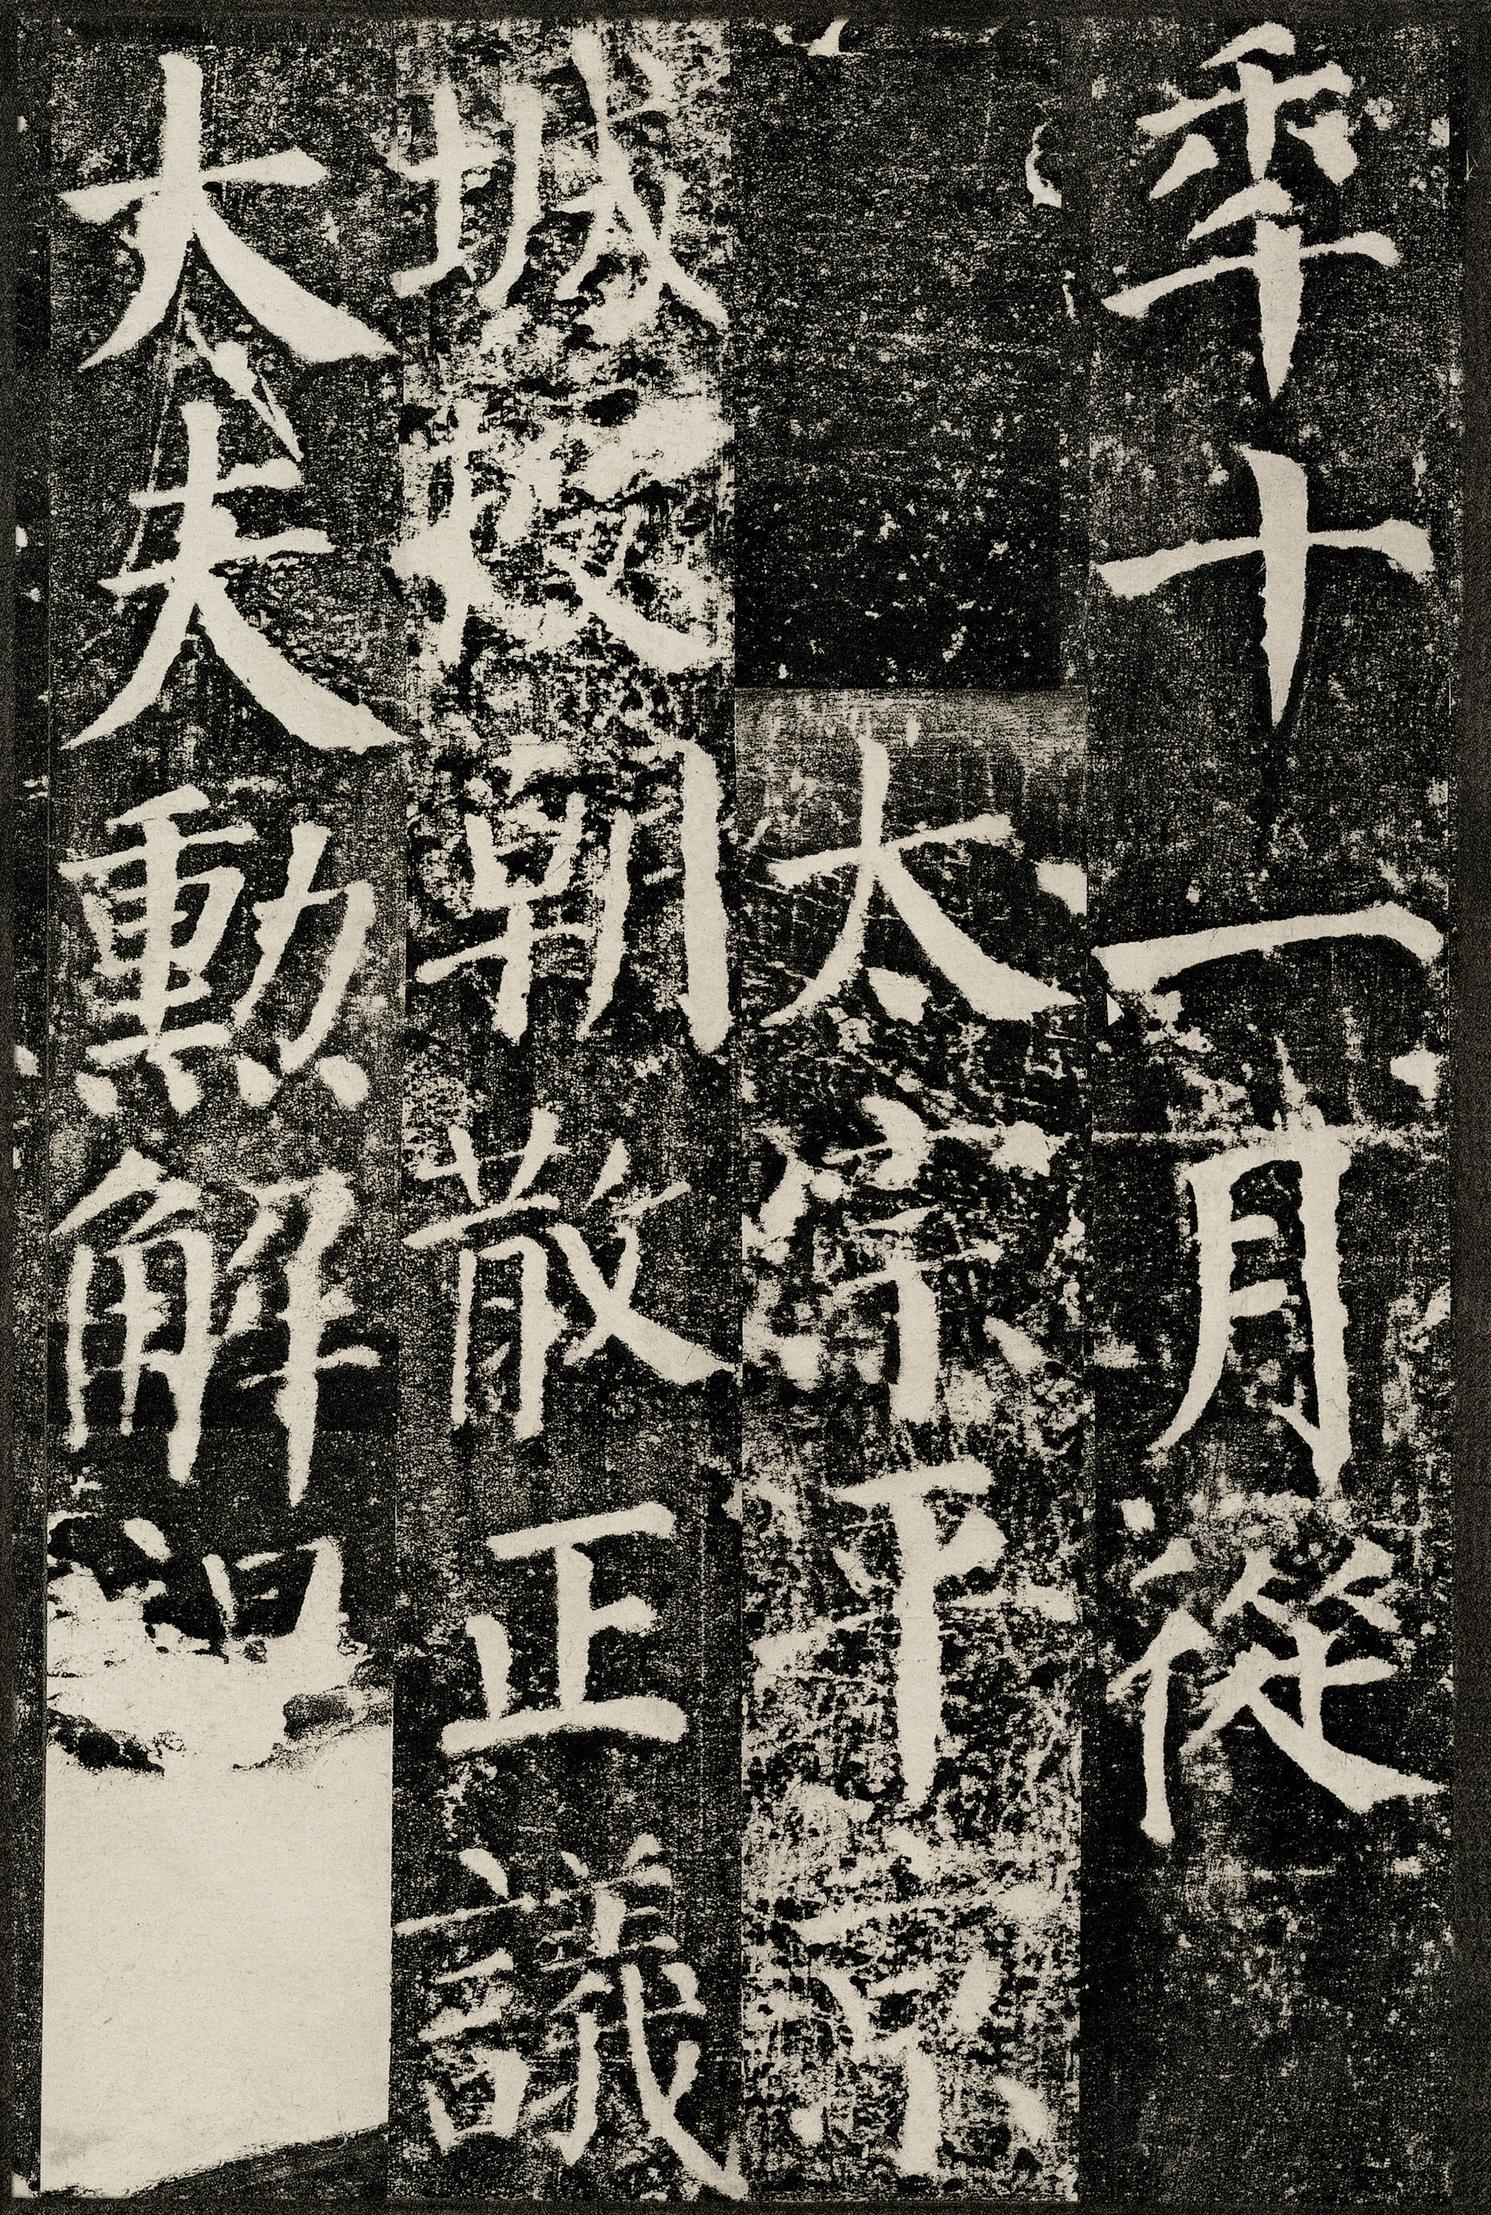 年十一月從
太宗平京
城授朝散正議
大夫勳解